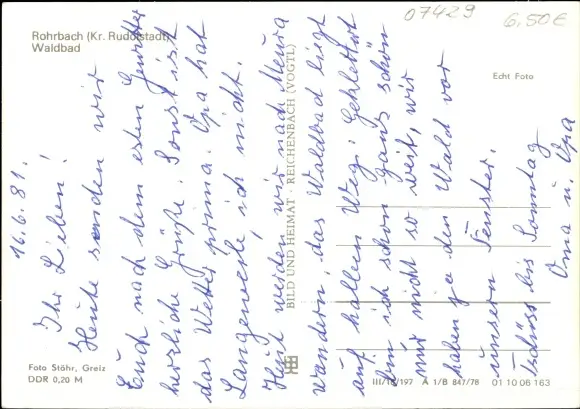 07429
6.50€
Rohrbach (Kr. Rudolstadt)
Waldbad
Echt Foto
16.6.81.
Ihr Lieben!
Heute senden wir
Euch nach dem ersten Gewitter
herzliche Grüße. Sonst ist
das Wetter prima. Opa hat
Langeweile, ich nicht.
Heut werden wir nach Meura
wandern, das Waldbad liegt
auf halbem Weg. Geklettert
bin ich schon ganz schön
nur nicht so weit, wir
haben ja den Wald vor
unserm Fenster.
Tschüss bis Sonntag
Oma u. Opa
BILD UND HEIMAT · REICHENBACH (VOGTL)
Foto Stöhr, Greiz
DDR 0,20 M
III/18/197 A 1/B 847/78 01 10 06 163